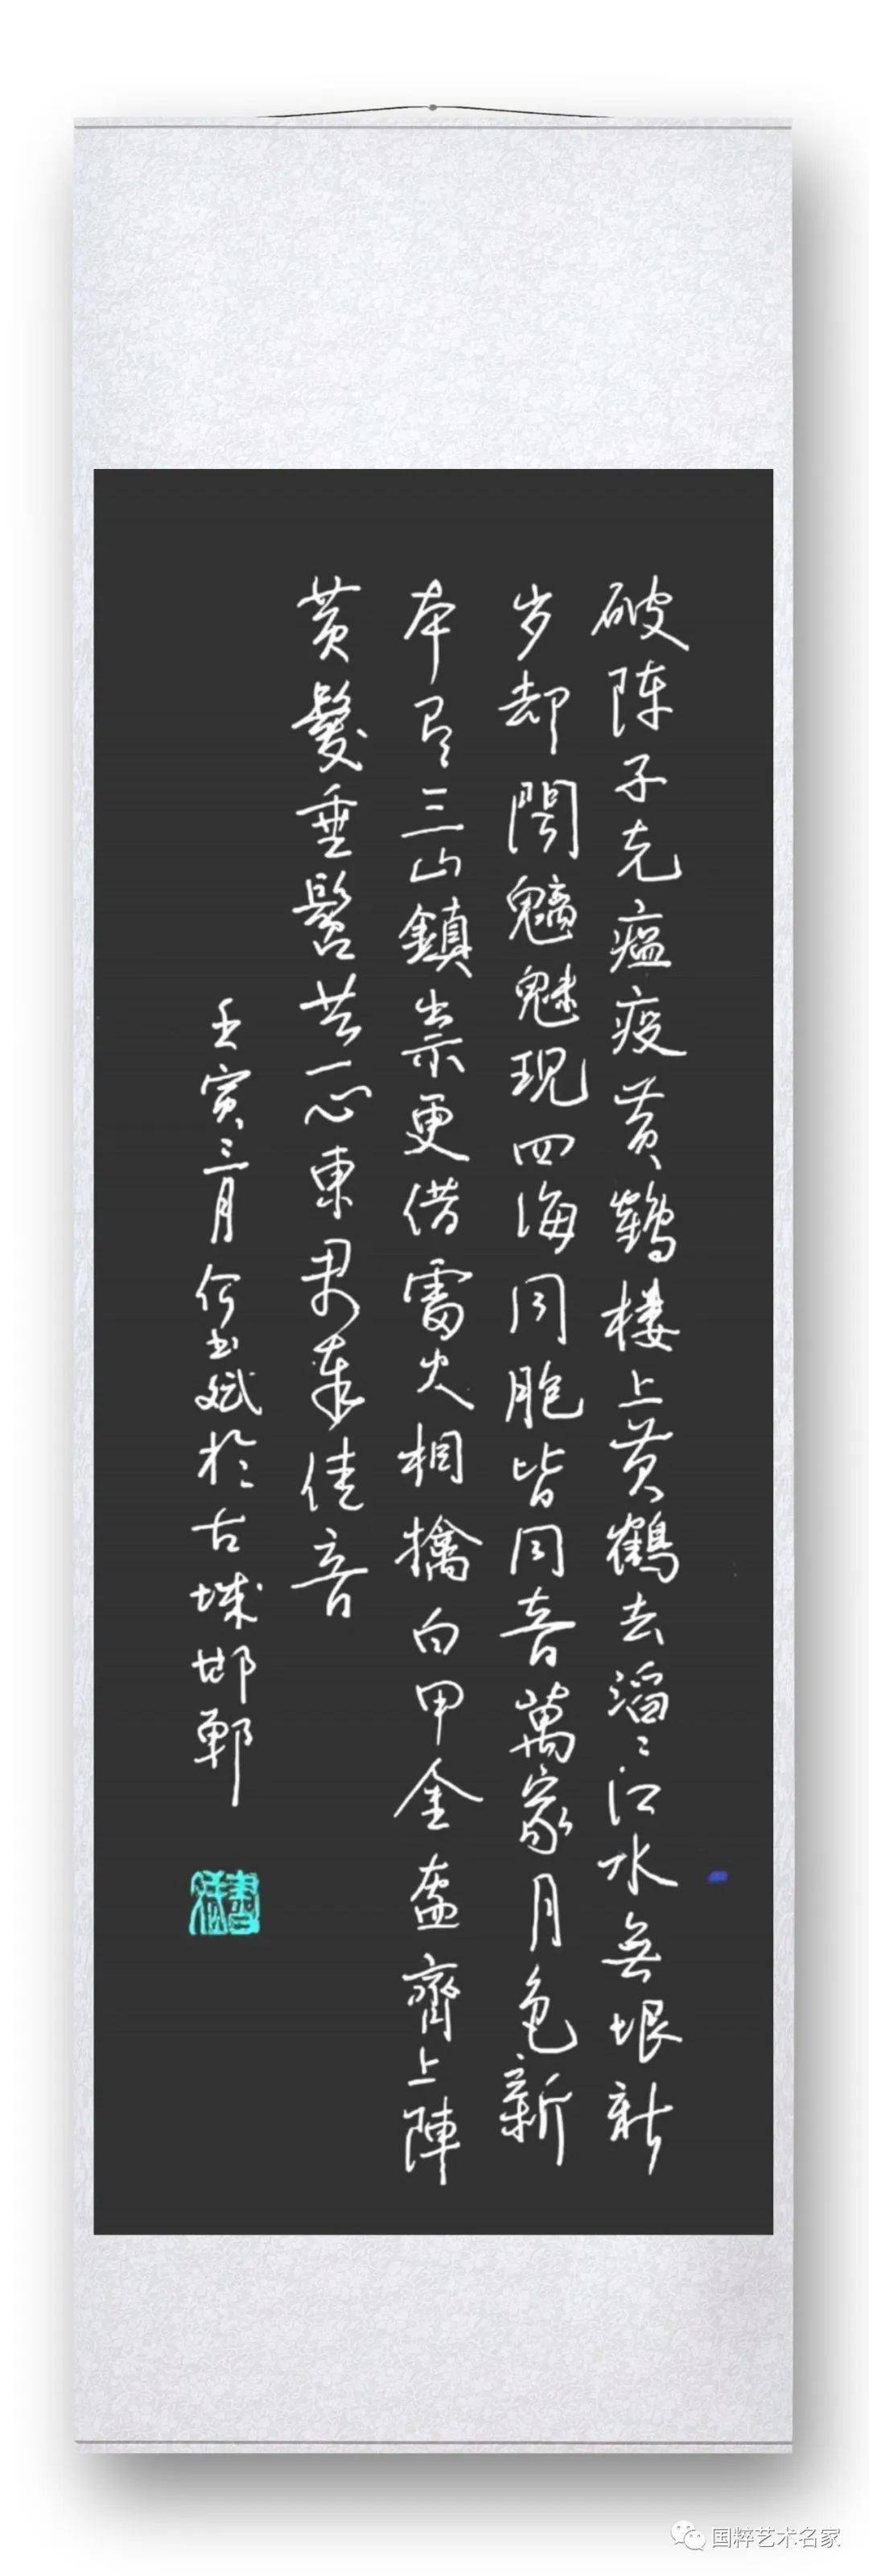 破阵子克瘟疫黄鹤楼上黄鹤去滔〻江水無垠新
岁却闻魑魅现四海同胞皆同音萬家月色新
本有三山鎮祟更借雷火相擒白甲金盔齊上陣
黄髮垂髫共一心東君奉佳音
壬寅三月何书斌於古城邯郸
書斌
国粹艺术名家